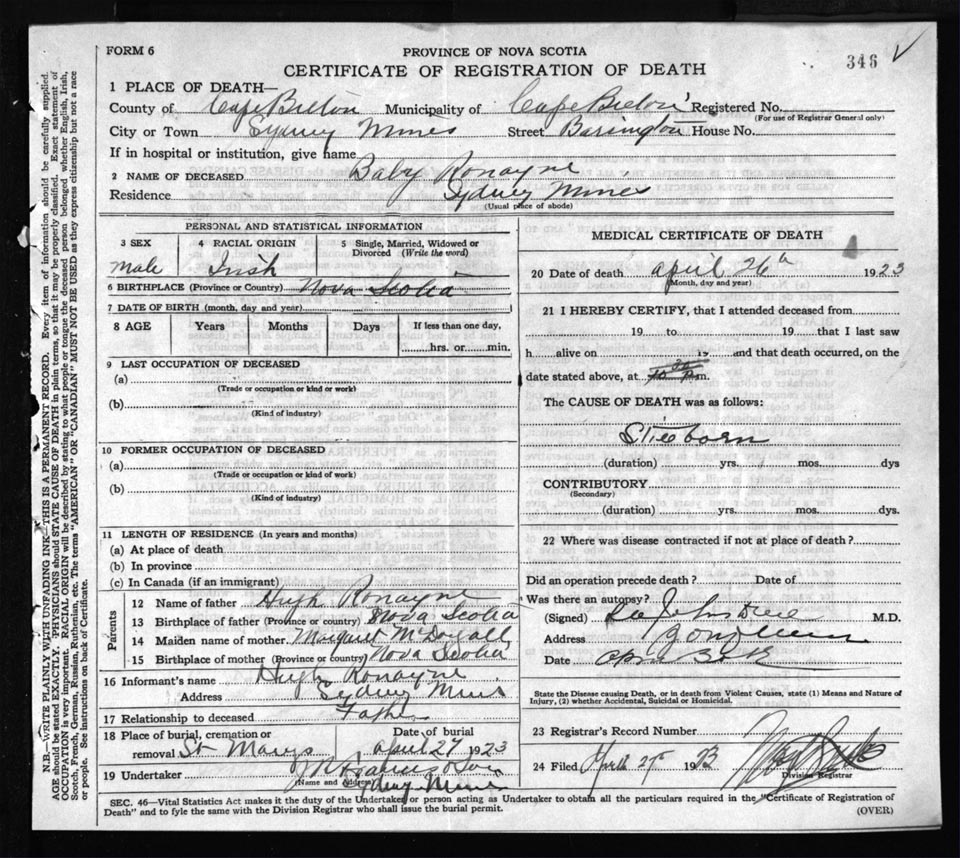 FORM 6
PROVINCE OF NOVA SCOTIA
CERTIFICATE OF REGISTRATION OF DEATH
346
1 PLACE OF DEATH—
County of Cape Breton Municipality of Cape Breton Registered No.
(For use of Registrar General only)
City or Town Sydney Mines Street Barrington House No.
If in hospital or institution, give name
2 NAME OF DECEASED Baby Ronayne
Residence Sydney Mines
(Usual place of abode)
PERSONAL AND STATISTICAL INFORMATION
3 SEX
Male
4 RACIAL ORIGIN
Irish
5 Single, Married, Widowed or Divorced (Write the word)
6 BIRTHPLACE (Province or Country) Nova Scotia
7 DATE OF BIRTH (month, day and year)
8 AGE Years Months Days If less than one day,
hrs. or min.
9 LAST OCCUPATION OF DECEASED
(a)
(Trade or occupation or kind or work)
(b)
(Kind of industry)
10 FORMER OCCUPATION OF DECEASED
(a)
(Trade or occupation or kind of work)
(b)
(Kind of industry)
11 LENGTH OF RESIDENCE (In years and months)
(a) At place of death
(b) In province
(c) In Canada (if an immigrant)
Parents
12 Name of father Hugh Ronayne
13 Birthplace of father (Province or country) Nova Scotia
14 Maiden name of mother Margaret McDougall
15 Birthplace of mother (Province or country) Nova Scotia
16 Informant's name Hugh Ronayne
Address Sydney Mines
17 Relationship to deceased Father
18 Place of burial, cremation or removal St Marys
Date of burial
April 27 1923
19 Undertaker Francis & Son
(Name and Address)
Sydney Mines
MEDICAL CERTIFICATE OF DEATH
20 Date of death April 26th 1923
(Month, day and year)
21 I HEREBY CERTIFY, that I attended deceased from
19 to 19 that I last saw
h alive on 19 and that death occurred, on the
date stated above, at m.
The CAUSE OF DEATH was as follows:
Stillborn
(duration) yrs. mos. dys
CONTRIBUTORY
(Secondary)
(duration) yrs. mos. dys.
22 Where was disease contracted if not at place of death?
Did an operation precede death? Date of
Was there an autopsy?
(Signed) M.D.
Address
Date
State the Disease causing Death, or in death from Violent Causes, state (1) Means and Nature of
Injury, (2) whether Accidental, Suicidal or Homicidal.
23 Registrar's Record Number
24 Filed April 27th 1923
Division Registrar
SEC. 46—Vital Statistics Act makes it the duty of the Undertaker or person acting as Undertaker to obtain all the particulars required in the "Certificate of Registration of
Death" and to fyle the same with the Division Registrar who shall issue the burial permit.
(OVER)
N.B.—WRITE PLAINLY WITH UNFADING INK—THIS IS A PERMANENT RECORD. Every item of information should be carefully supplied.
AGE should be stated EXACTLY. PHYSICIANS should STATE CAUSE OF DEATH in plain terms, so that it may be properly classified. Exact statement of
OCCUPATION is very important. RACIAL ORIGIN will be described by stating to what people or tongue the deceased person belonged whether English, Irish,
Scotch, French, German, Russian, Ruthenian, etc. The terms "AMERICAN" OR "CANADIAN" MUST NOT BE USED as they express citizenship but not a race
or people. See instructions on back of Certificate.